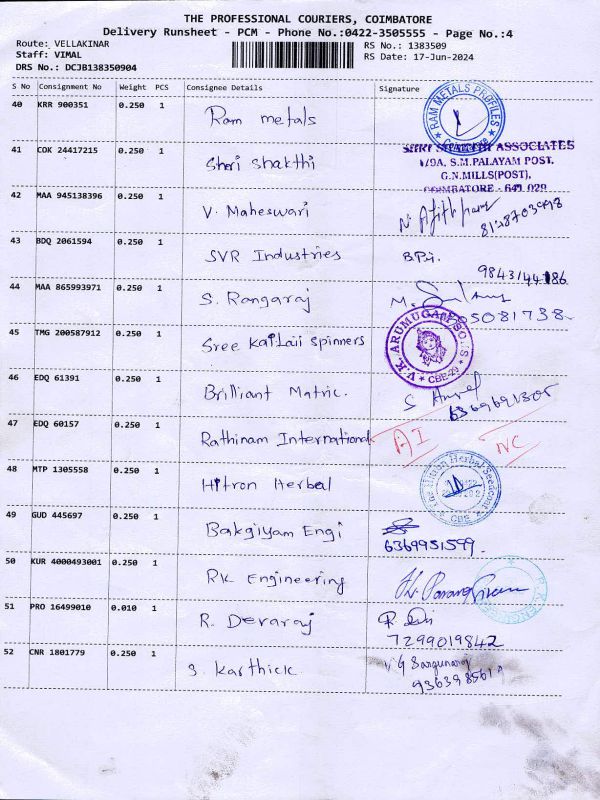 THE PROFESSIONAL COURIERS, COIMBATORE
Delivery Runsheet - PCM - Phone No.:0422-3505555 - Page No.:4
Route: VELLAKINAR
Staff: VIMAL
DRS No.: DCJB138350904
RS No.: 1383509
RS Date: 17-Jun-2024
S No Consignment No Weight PCS Consignee Details Signature
40 KRR 900351 0.250 1 Ram metals RAM METALS PROFILES
41 COK 24417215 0.250 1 Shri Shakthi SHRI SHAKTHI ASSOCIATES
1/9A, S.M.PALAYAM POST.
G.N.MILLS(POST),
COIMBATORE - 641 029
42 MAA 945138396 0.250 1 V. Maheswari
43 BDQ 2061594 0.250 1 SVR Industries
44 MAA 865993971 0.250 1 S. Rangaraj
45 TMG 200587912 0.250 1 Sree Kailaii Spinners V.K. ARUMUGAM SONS CBE-29
46 EDQ 61391 0.250 1 Brilliant Matric.
47 EDQ 60157 0.250 1 Rathinam International AI NC
48 MTP 1305558 0.250 1 Hitron Herbal CBE
49 GUD 445697 0.250 1 Bakgiyam Engi 6369951599.
50 KUR 4000493001 0.250 1 RK Engineering
51 PRO 16499010 0.010 1 R. Devaraj
7299019842
52 CNR 1801779 0.250 1 S. Karthick V G Sargunaraj